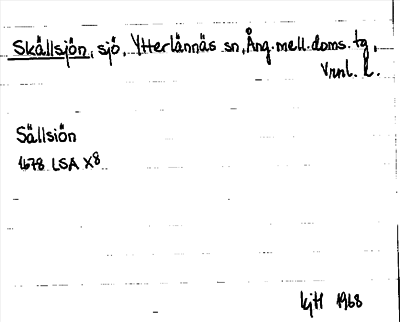 Skällsjön, sjö, Ytterlännäs sn, Ång. mell. doms. tg,
Vrnl. l.
Sällsiön
1678 LSA X8
kjH 1968